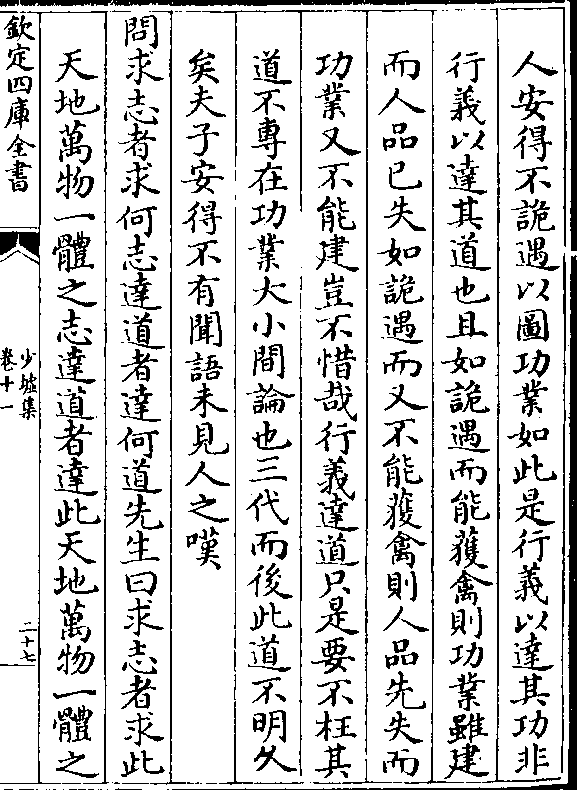 人安得不詭遇以圖功業如此是行義以達其功非
行義以達其道也且如詭遇而能獲禽則功業雖建
而人品已失如詭遇而又不能獲禽則人品先失而
功業又不能建豈不惜哉行義達道只是要不枉其
道不專在功業大小間論也三代而後此道不明久
矣夫子安得不有聞語未見人之嘆
問求志者求何志達道者達何道先生曰求志者求此
天地萬物一體之志達道者達此天地萬物一體之
欽定四庫全書
少墟集
卷十一
二十七